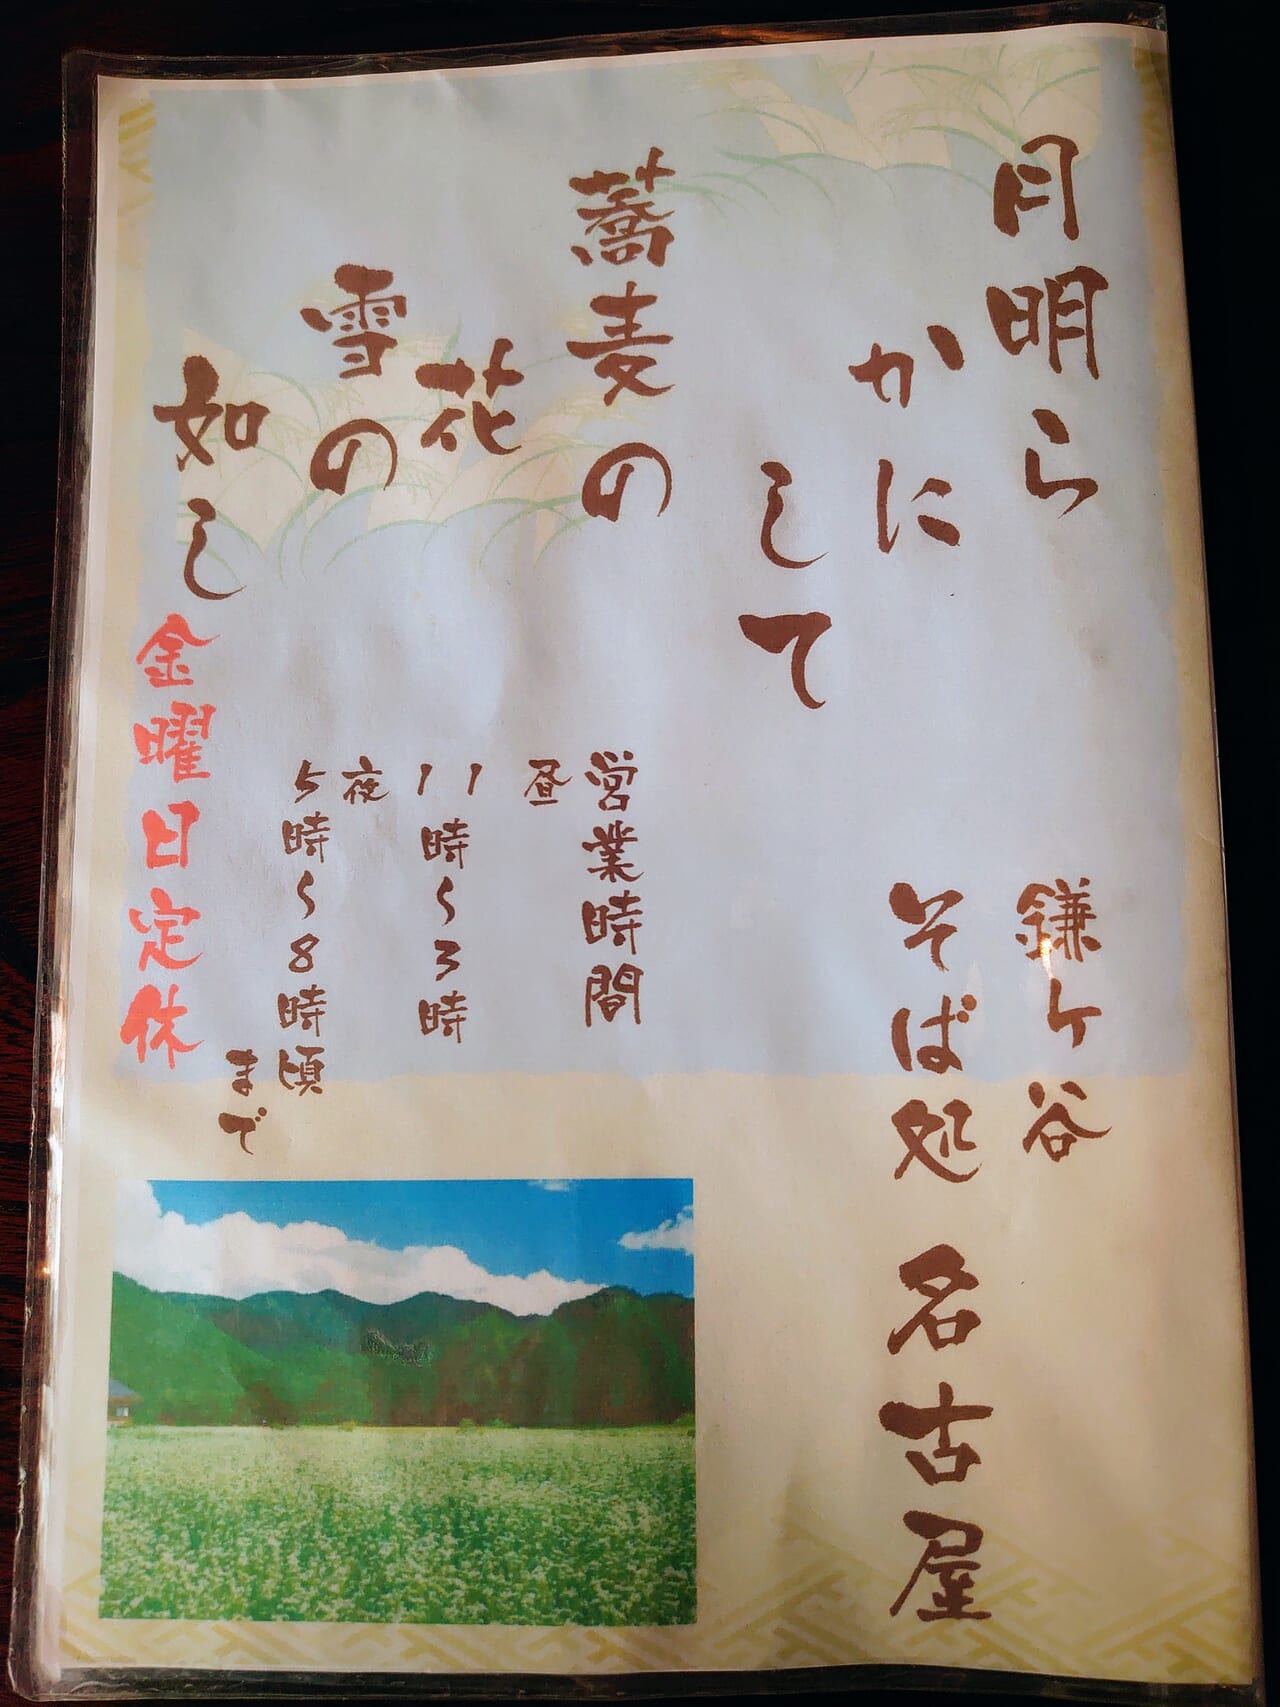 月明ら
かに
して
蕎麦の
花
雪の
如し
鎌ケ谷
そば処 名古屋
営業時間
昼
11時〜3時
夜
5時〜8時頃
まで
金曜日定休